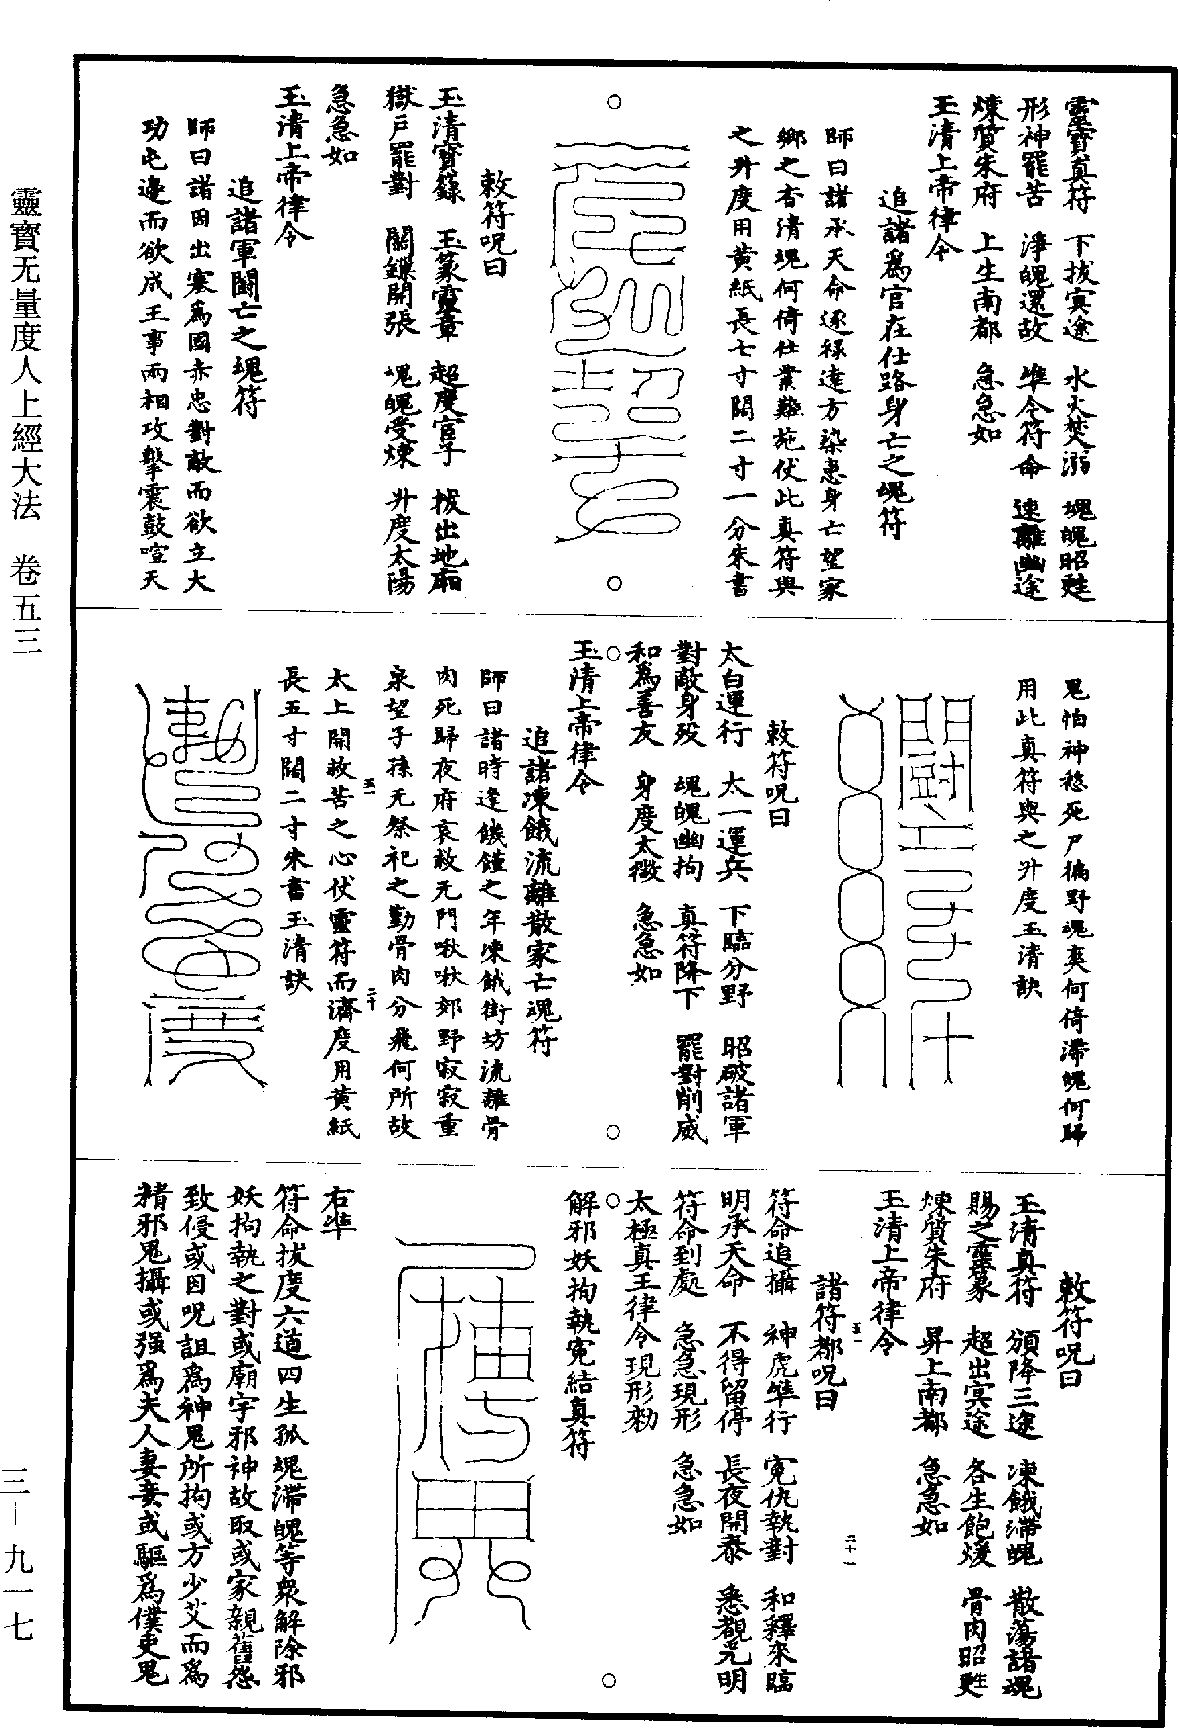 靈寶真符　下拔冥途　水火焚溺　魂魄昭甦
形神罷苦　淨魄還故　准令符命　速離幽途
煉質朱府　上生南都　急急如
玉清上帝律令
追諸爲官在仕路身亡之魂符
師曰諸承天命逐祿遠方染患身亡望家
鄉之杳清魂何倚仕業難施伏此真符與
之升度用黃紙長七寸闊二寸一分朱書
敕符呪曰
玉清寶籙　玉篆靈章　超度官子　拔出地扃
獄戶罷對　關鏁開張　魂魄受煉　升度太陽
急急如
玉清上帝律令
追諸軍鬬亡之魂符
師曰諸因出塞爲國赤忠對敵而欲立大
功屯邊而欲成王事兩相攻擊震鼓喧天
鬼怕神愁死尸徧野魂爽何倚滯魄何歸
用此真符與之升度玉清訣
敕符呪曰
太白運行　太一運兵　下臨分野　昭破諸軍
對敵身殁　魂魄幽拘　真符降下　罷對削威
和爲善友　身度太微　急急如
玉清上帝律令
追諸凍餓流離散家亡魂符
師曰諸時逢饑饉之年凍餓街坊流離骨
肉死歸夜府哀救无門啾啾郊野寂寂重
泉望子孫无祭祀之勤骨肉分飛何所故
太上開救苦之心伏靈符而濟度用黃紙
長五寸闊二寸朱書玉清訣
敕符呪曰
玉清真符　頒降三途　凍餓滯魄　散蕩諸魂
賜之靈篆　超出冥途　各生飽煖　骨肉昭甦
煉質朱府　昇上南都　急急如
玉清上帝律令
諸符都呪曰
符命追攝　神虎準行　冤仇執對　和釋來臨
明承天命　不得留停　長夜開泰　悉覩光明
符命到處　急急現形　急急如
太極真王律令現形勑
解邪妖拘執冤結真符
右準
符命拔度六道四生孤魂滯魄等衆解除邪
妖拘執之對或廟宇邪神故取或家親舊怨
致侵或因呪詛爲神鬼所拘或方少艾而爲
精邪鬼攝或强爲夫人妻妾或驅爲僕吏鬼
靈寶无量度人上經大法　卷五三
三—九一七